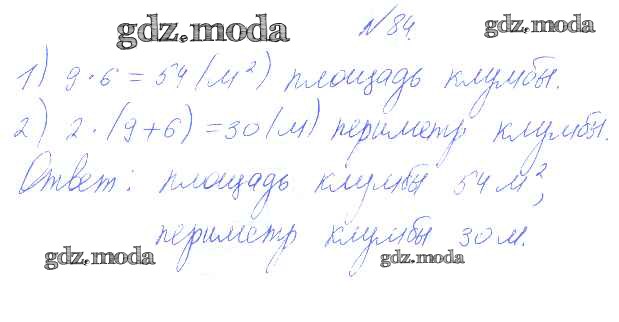 gdz.moda №84. gdz.moda
1) 9·6=54(м²) площадь клумбы.
2) 2·(9+6)=30(м) периметр клумбы.
Ответ: площадь клумбы 54 м²,
периметр клумбы 30 м.
gdz.moda gdz.moda